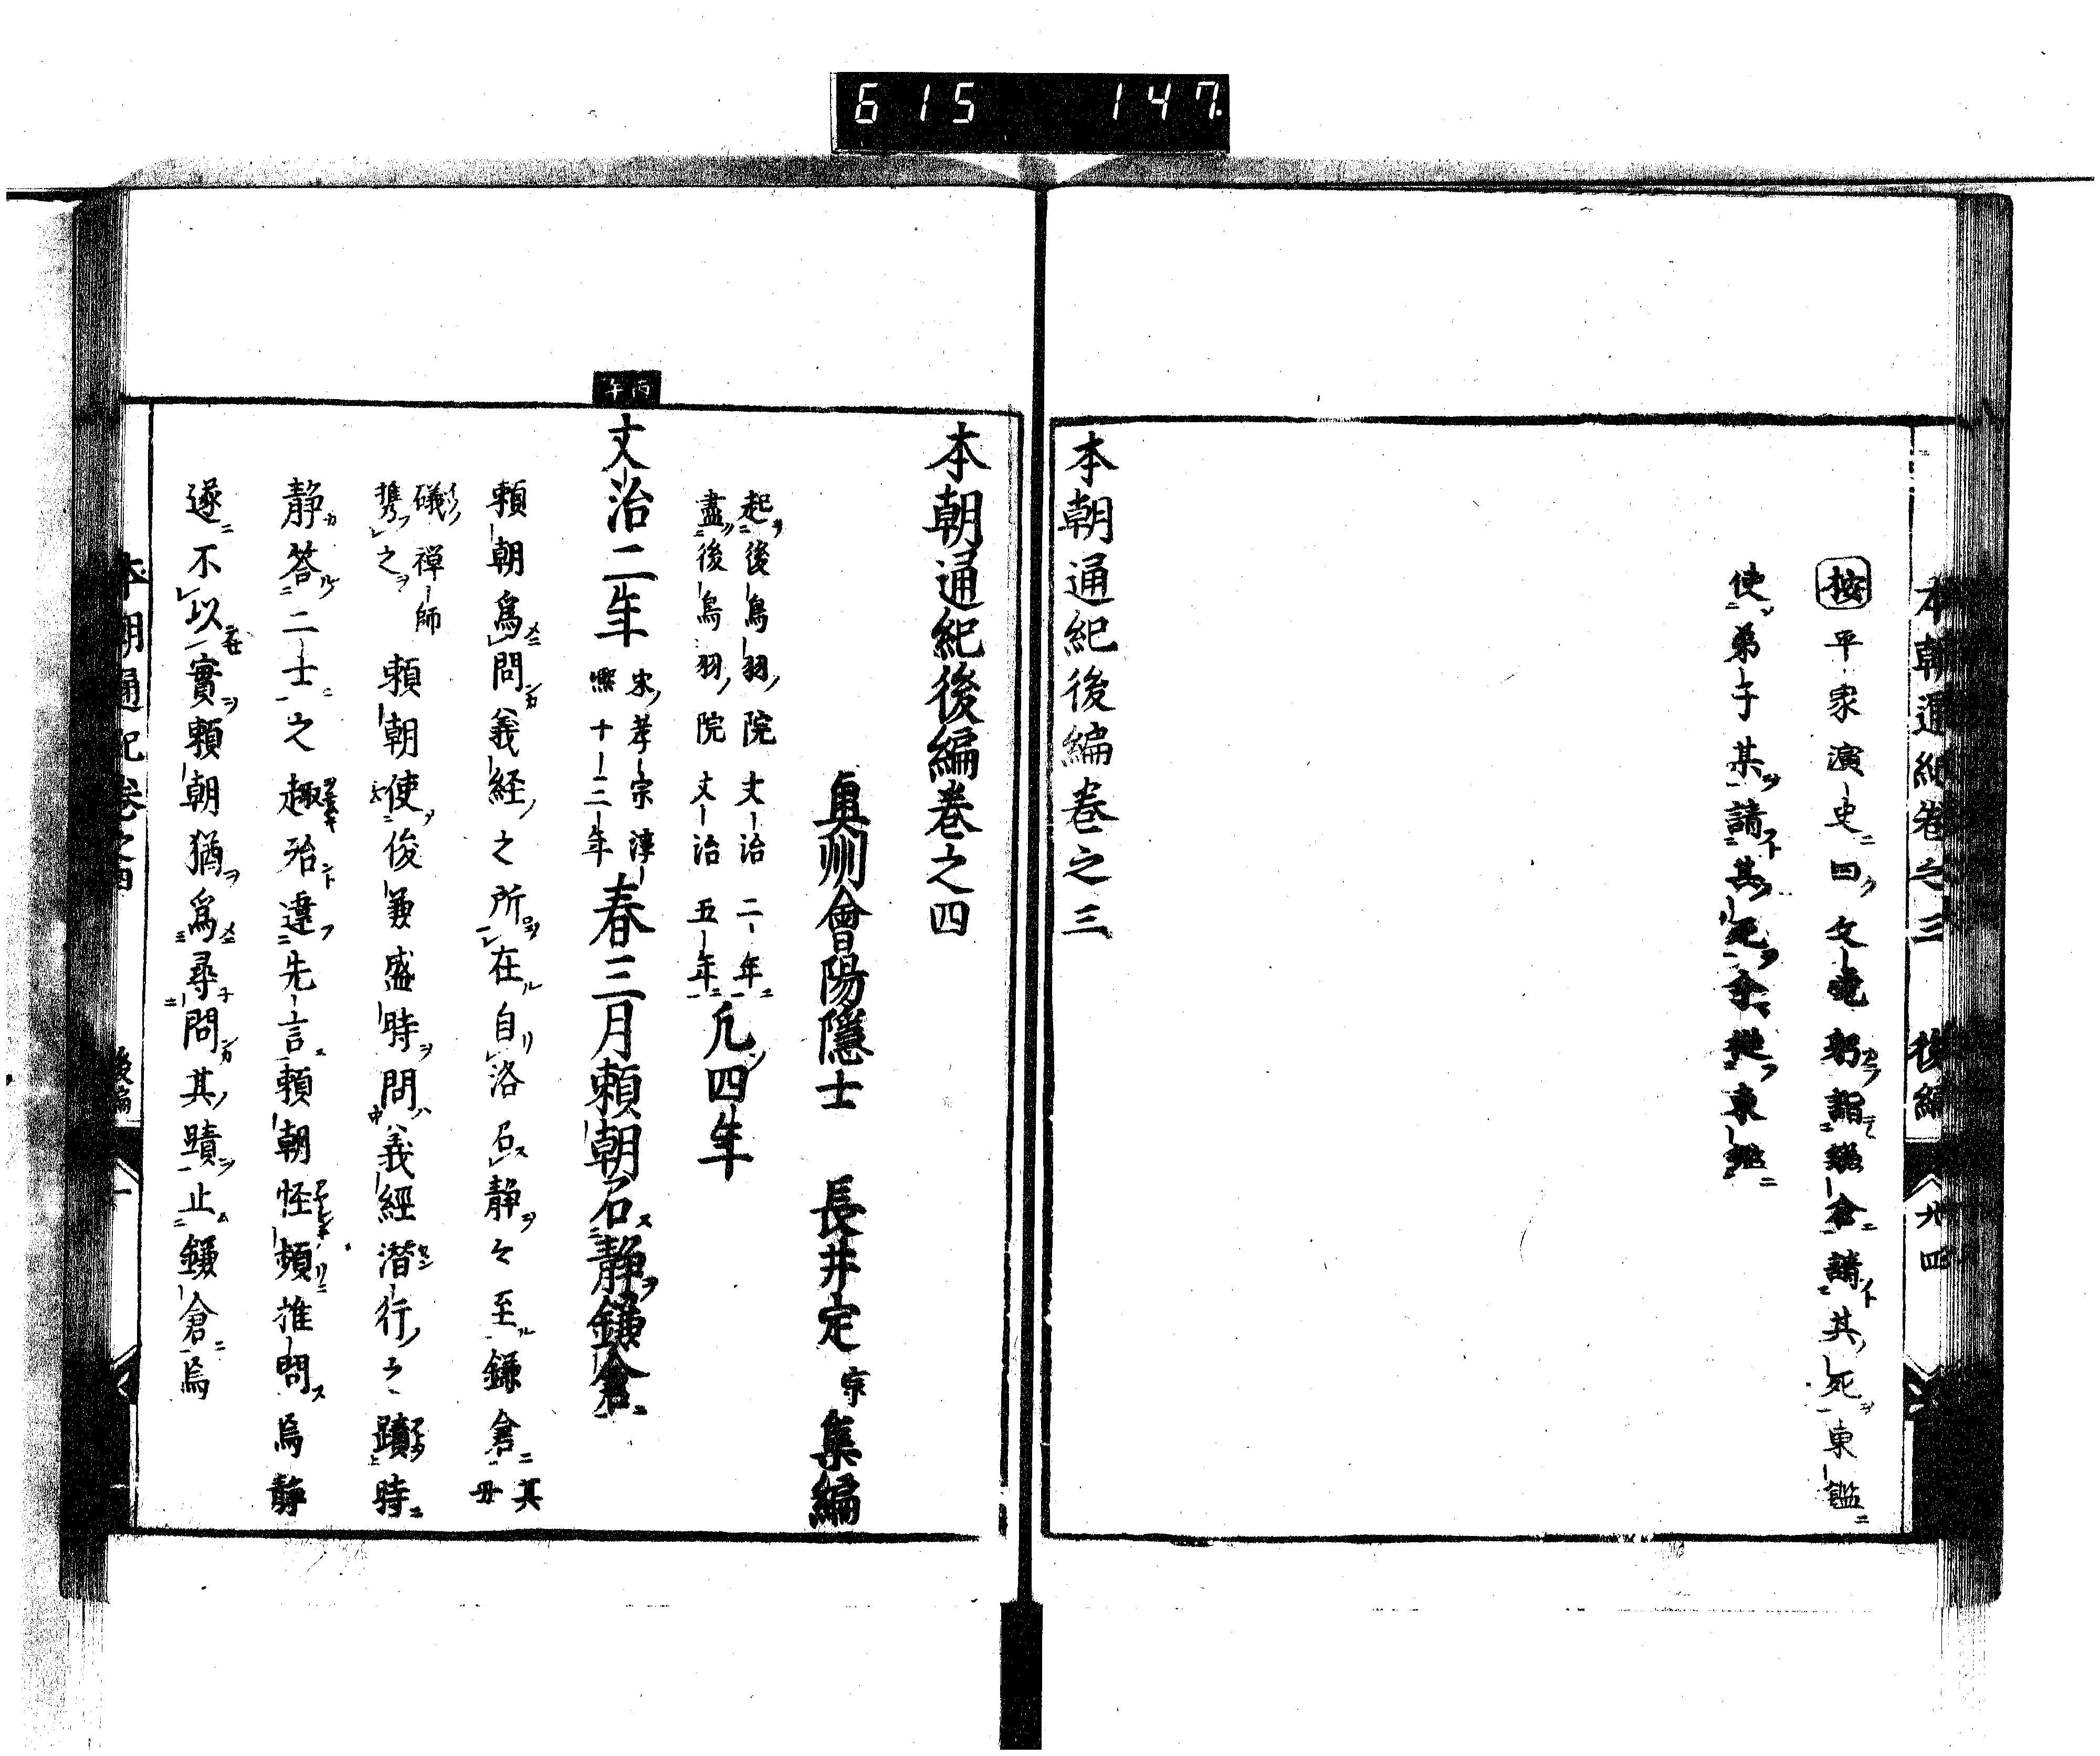 615 147
本朝通紀卷之三 後編 卅四
按平家演史曰文覺躬詣鎌倉請其死東鑑
使弟子某請其死今從東鑑
本朝通紀後編卷之三
本朝通紀後編卷之四
奥州會陽隱士 長井定宗集編
起後鳥羽院文治二年
盡後鳥羽院文治五年
凡四年
丙午
文治二年
宋孝宗淳
熈十二年
春三月頼朝召静鎌倉
頼朝爲問義経之所在自洛召静々至鎌倉
其母
礒禅師
携之
頼朝使俊兼盛時問義經潜行之蹟時
静答二士之趣殆違先言頼朝怪頻推問焉静
遂不以實頼朝猶爲尋問其蹟止鎌倉焉
本朝通紀卷之四 後編 一